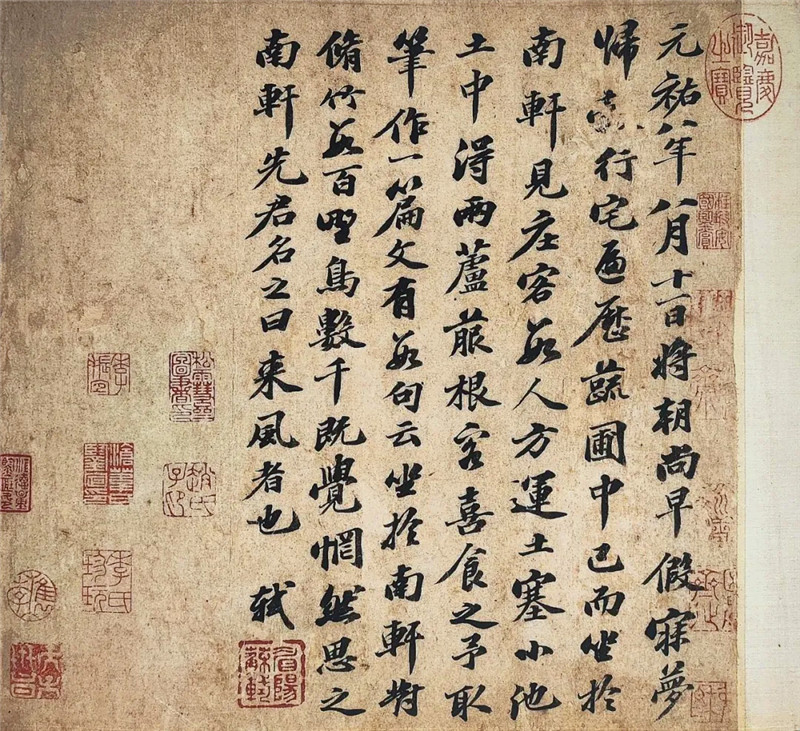 嘉慶御覽之寶
元祐八年八月十一日將朝尚早假寐夢
歸行宅遍歷蔬圃中已而坐於
南軒見庄客數人方運土塞小池
土中得兩蘆菔根客喜食之予取
筆作一篇文有數句云坐於南軒對
脩竹數百野鳥數千既覺惘然思之
南軒先君名之曰來風者也 軾
眉陽蘇軾
趙氏子印